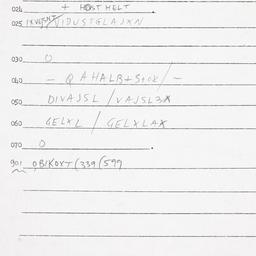 024 + HOSTMELT
025 VIDUSTGLAJXN
030 0
040 - QAHALB+S+OX/-
050 DIVAJSL / VAJSL3X
060 GELXL / GELXLAX
070 0
901 OBIKOXT(339(599